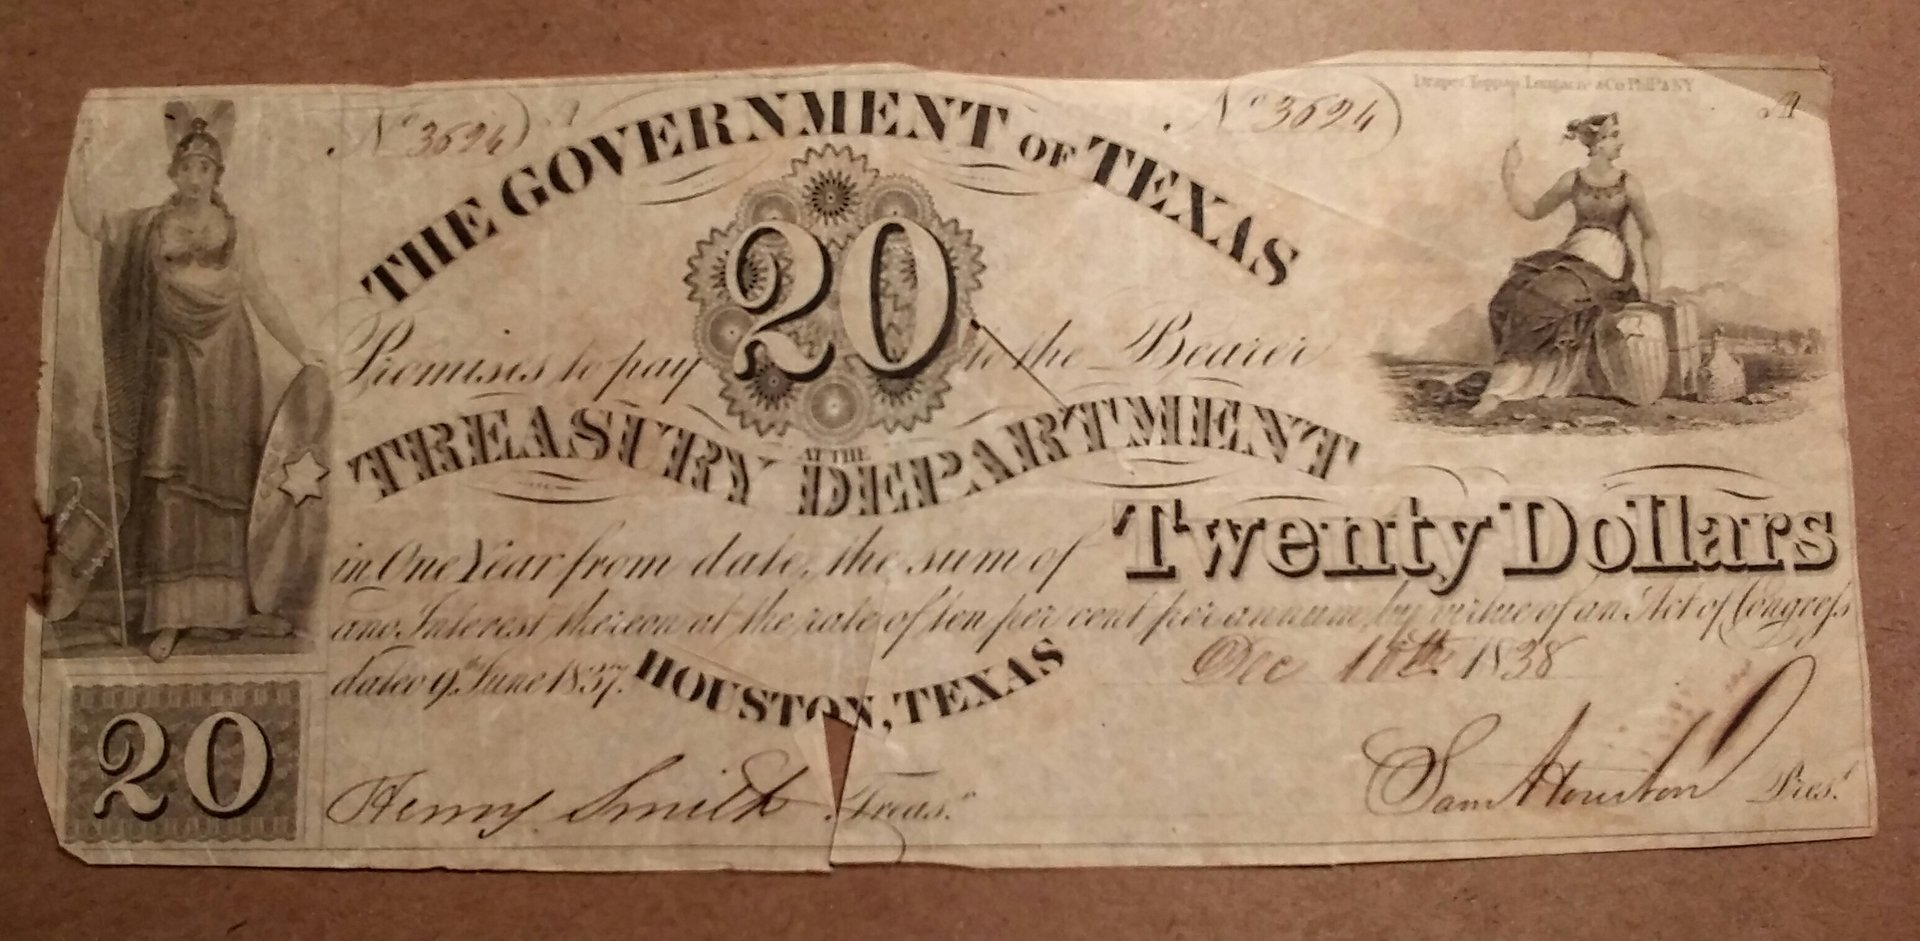 No 3694
No 3694
Draper, Toppan, Longacre & Co Phila & NY
A
THE GOVERNMENT OF TEXAS
20
Promises to pay to the Bearer
AT THE
TREASURY DEPARTMENT
in One Year from date, the sum of Twenty Dollars
and Interest thereon at the rate of ten per cent per annum, by virtue of an Act of Congress
dated 9th June 1837.
HOUSTON, TEXAS
Dec 1838
20
Henry Smith Treas.r
Sam Houston Pres.t